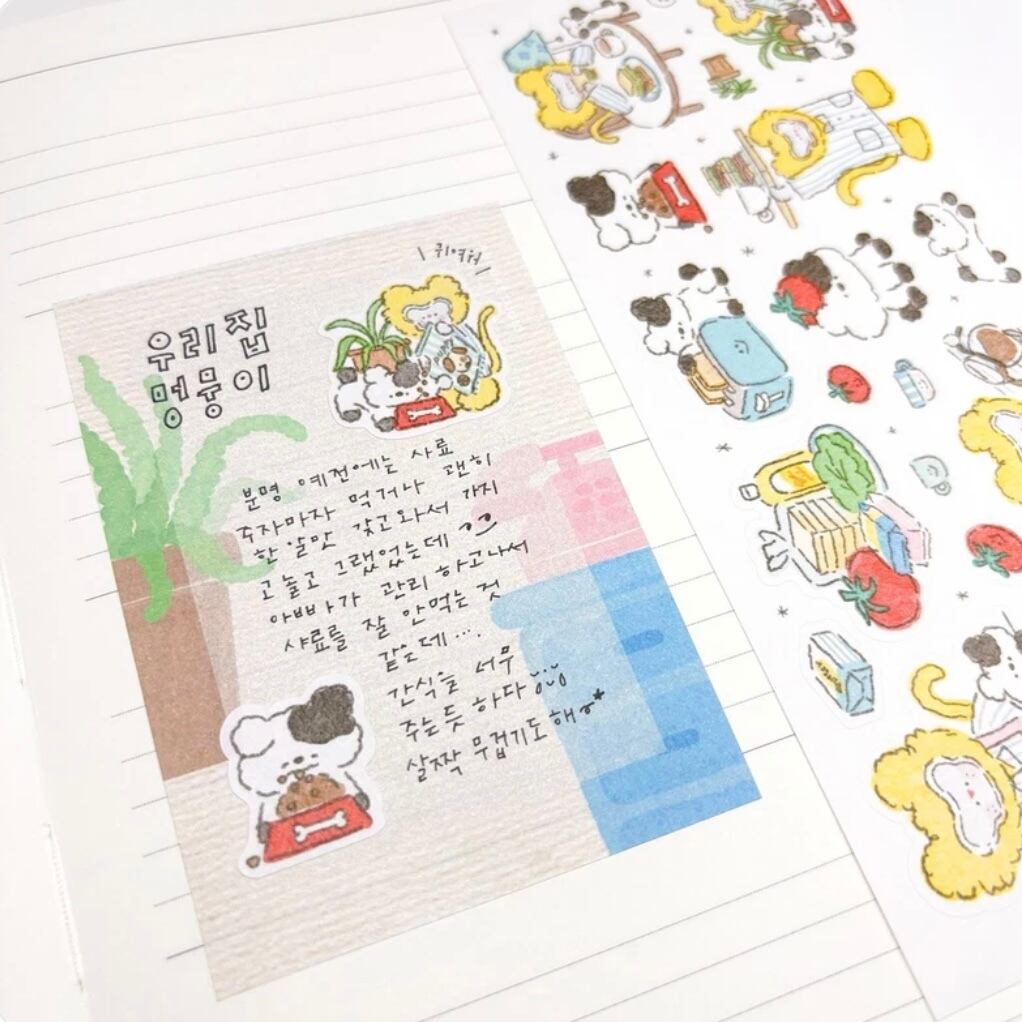 귀여워
우리 집
멍뭉이
분명 예전에는 사료
주자마자 먹거나 괜히
한 알만 갖고와서 가지
고놀고 그랬었는데
아빠가 관리 하고나서
사료를 잘 안먹는 것
같은데...
간식을 너무
주는듯 하다
살짝 무겁기도해